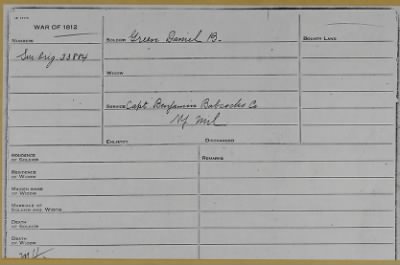 WAR OF 1812
NUMBER
Sur orig 33884
SOLDIER Green Daniel B.
WIDOW
SERVICE Capt. Benjamin Babcocks Co
NY Mil
ENLISTED DISCHARGED
BOUNTY LAND
RESIDENCE
OF SOLDIER
RESIDENCE
OF WIDOW
MAIDEN NAME
OF WIDOW
MARRIAGE OF
SOLDIER AND WIDOW
DEATH
OF SOLDIER
DEATH
OF WIDOW
REMARKS